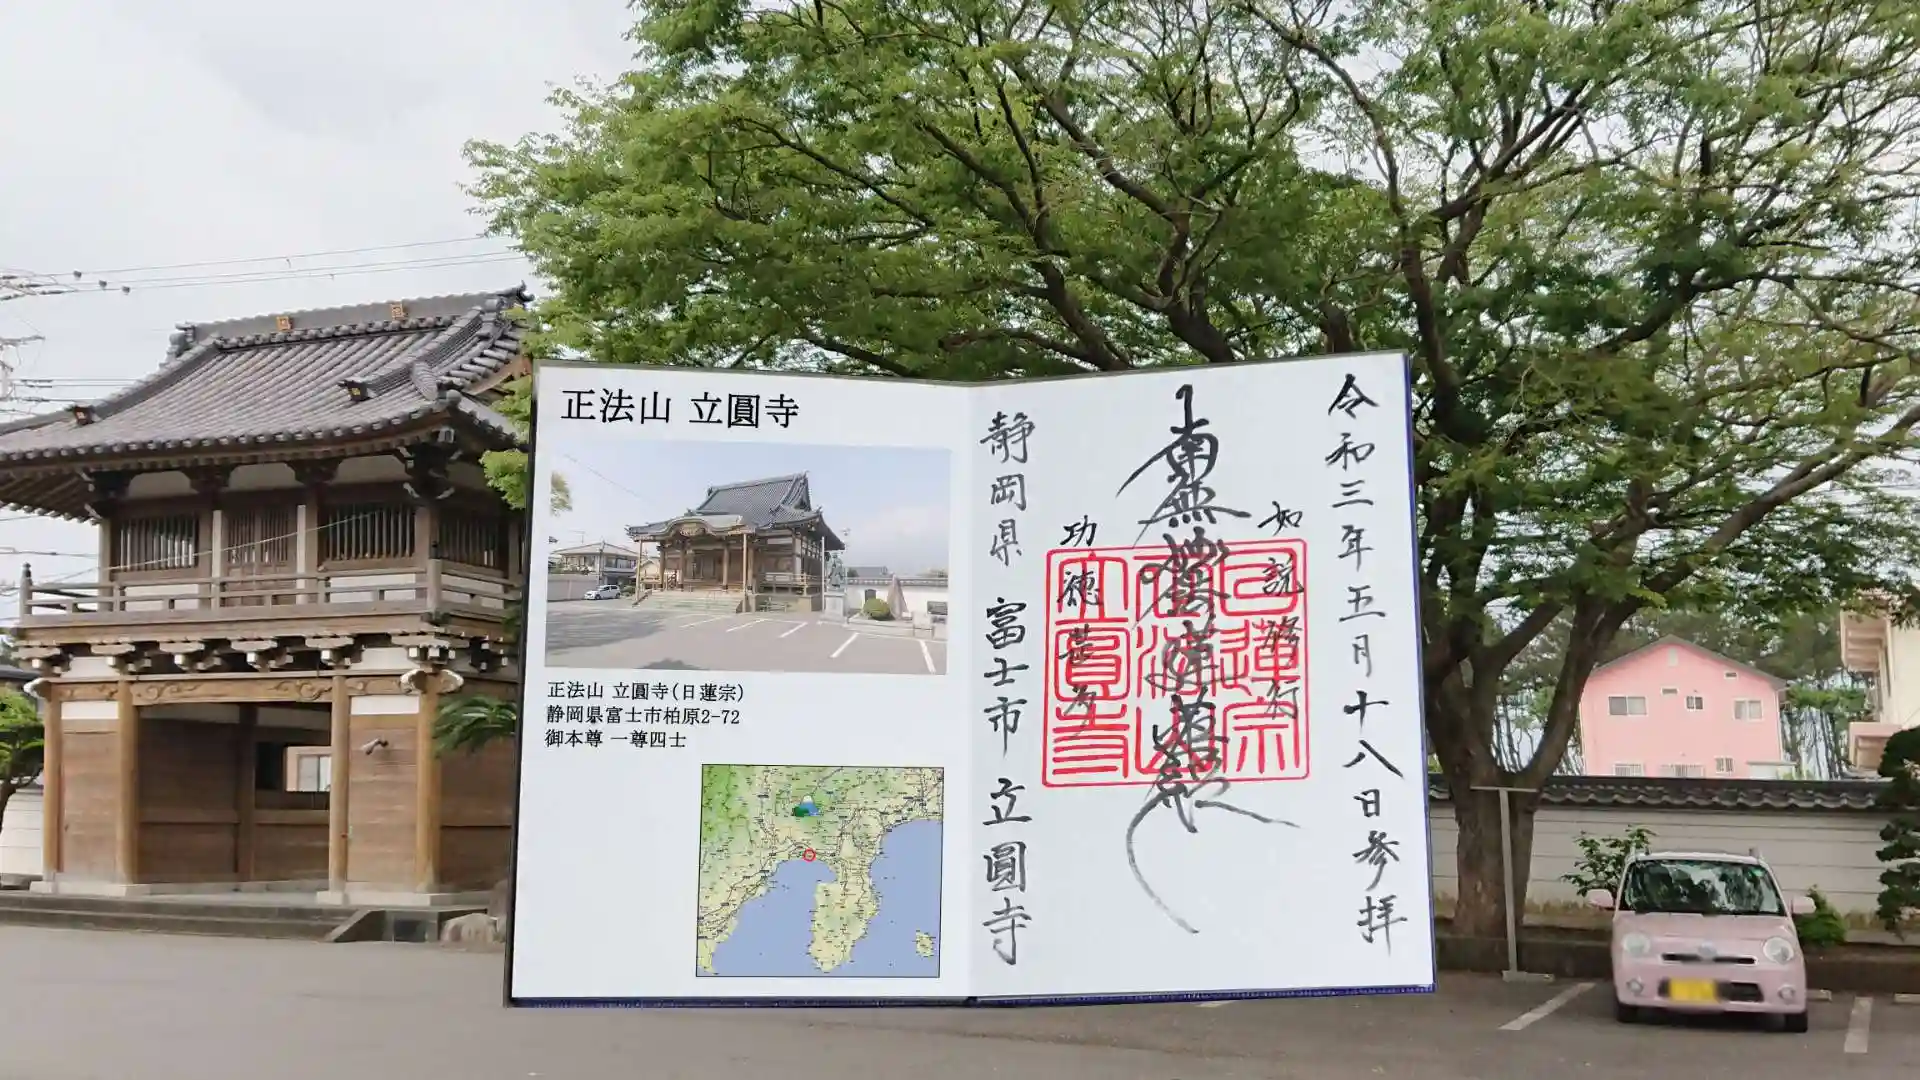 正法山 立圓寺
正法山 立圓寺(日蓮宗)
静岡県富士市柏原2-72
御本尊 一尊四士
令和三年五月十八日参拝
如説修行
南無妙法蓮華経
功徳甚多
日蓮宗
正法山
立圓寺
静岡県 富士市 立圓寺